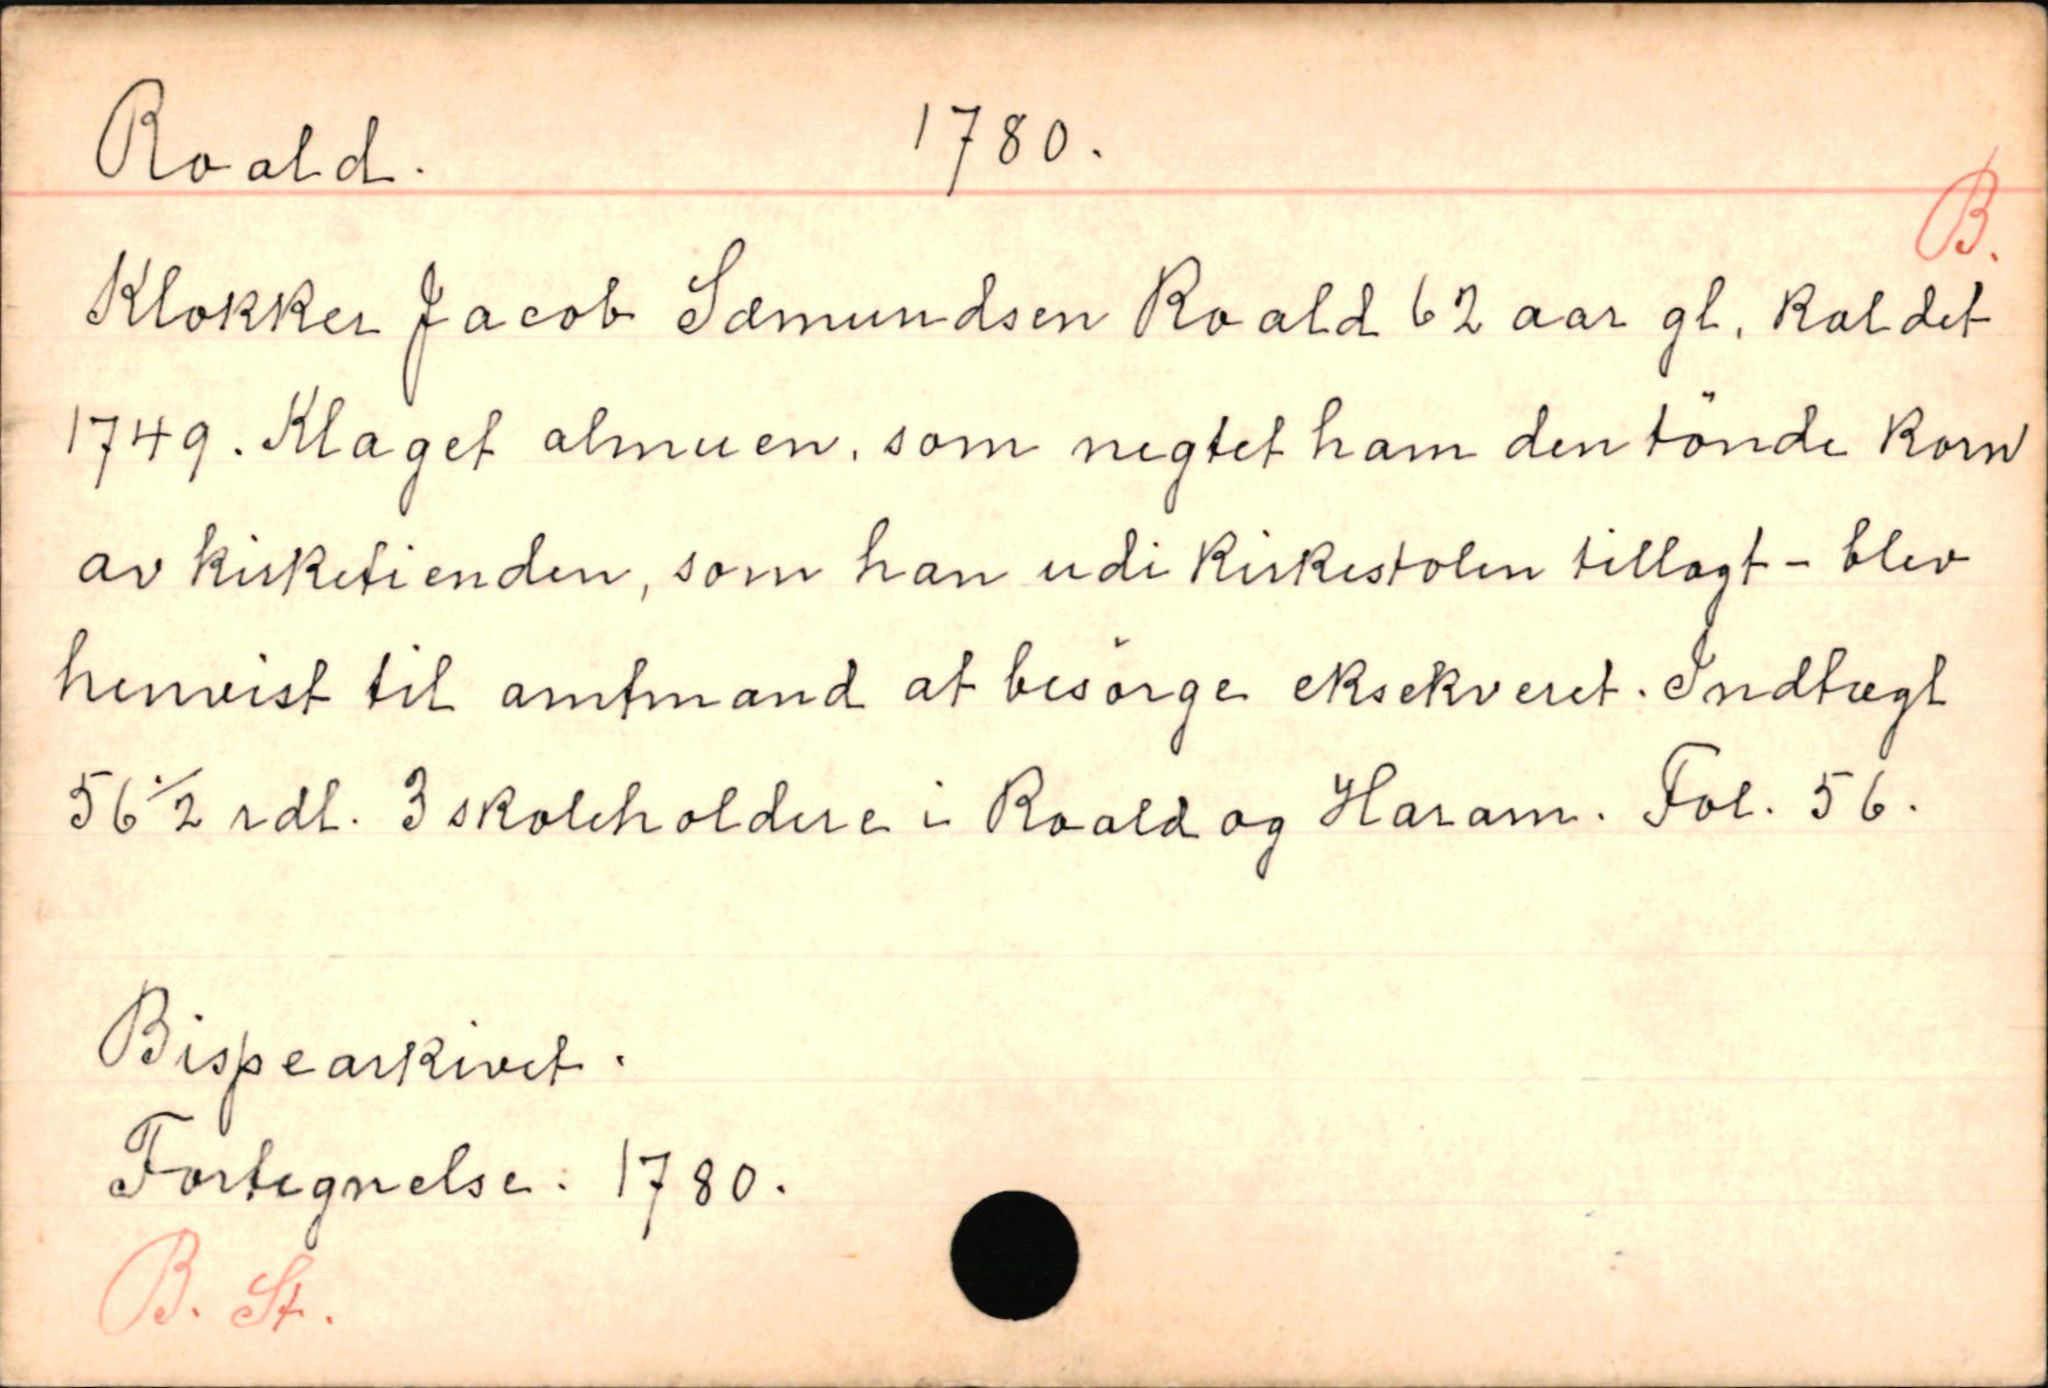 Roald. 1780.
B.
Klokker Jacob Sæmundsen Roald 62 aar gl, kaldet
1749. Klaget almuen, som negtet ham den tönde korn
av kirketienden, som han udi kirkestolen tillagt - blev
henvist til amtmand at besörge eksekveret. Indtægt
56 1/2 rdl. 3 skoleholdere i Roald og Haram. Fol. 56.
Bispearkivet.
Fortegnelse: 1780.
B. St.